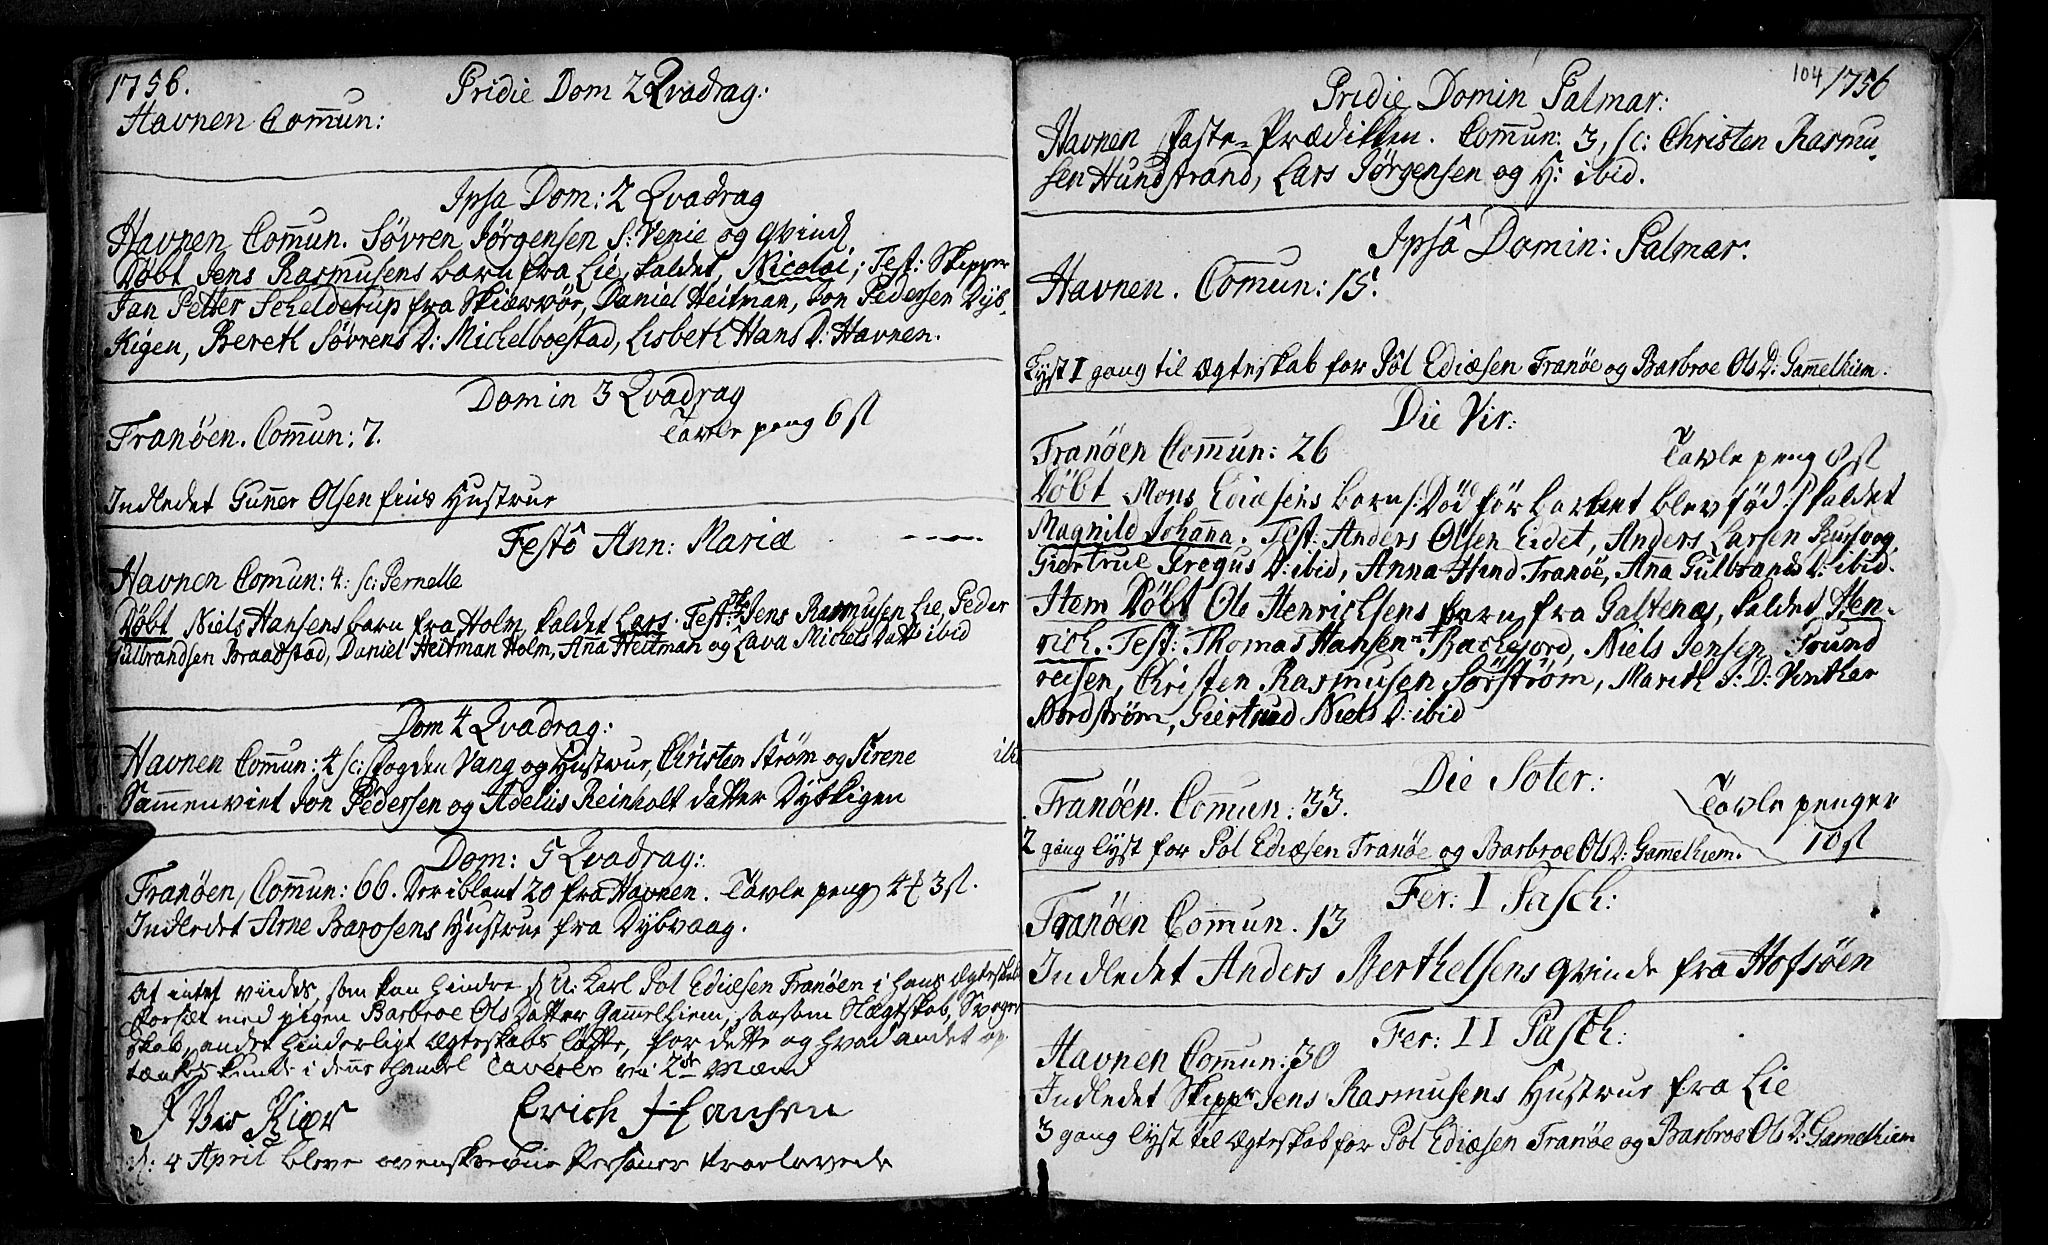 1756.
Pridie Dom 2 Qvadrag:
Havnen Com̄un:
Ipsa Dom: 2 Qvadrag
Havnen Com̄un. Søvren Jørgensen S: Venie og qvinde
Døbt Jens Rasmusens barn fra Lie, kaldet, Nicolai; Test: Skipper
Jan Petter Schelderup fra Skiærvør, Daniel Heitman, Jon Pedersen Dyb-
Kigen, Bereth Søvrens D: Michelboestad, Lisbeth Hans D: Havnen.
Domin 3 Qvadrag
Tavle peng 6 sl
Tranöen. Com̄un: 7.
Indledet Gun̄er Olsen fins Hustrue
Festô Ann: Mariæ
Havnen Comun: 4: sc: Pernelle
Døbt Niels Hansens barn fra Holm kaldet Lars. Test: Jens Rasmusen Lie, Peder
Gulbrandsen Braadstad, Daniel Heitman Holm, Ana Heitman og Lava Michels Datt ibid
Dom 4 Qvadrag:
Havnen Com̄un: 4 sc: fogden Vang og Hustrue, Christen Strøm og Sirene
Sammenviet Jon Pedersen og Adelus Reinholt datter Dybkigen
Dom: 5 Qvadrag:
Tranöen, Com̄un: 66. Deriblant 20 fra Havnen. Tavle peng 4 3 sl.
Indledet Arne Barosens Hustrue fra Dybvaag.
At intet vides, som kan hindre d. U: Karl Pol Ediæsen Tranöen i hans Ægteskab
forsæt med pigen Barbroe Ols Datter Gammelhiem, saasom Slægtskab, Svoger
skab, andet hinderligt Ægteskabs løfte, for dette og hvad andet op
tænkes kunde i denne Handel Caverer vi 2de Mænd
Kiær Erich Hansen
d: 4 April bleve ovenskrevne Personer troelovede
104 1756
Pridie Domin Palmar:
Havnen Faste-Prædiken. Com̄un: 3, sc: Christen Rasmu-
sen Hundstrand, Lars Jørgensen og H: ibid.
Ipsâ Domin: Palmar:
Havnen. Comun: 15.
Lyst 1 gang til Ægteskab for Pôl Ediæsen Tranöe og Barbroe Ols D: Gam̄elhiem.
Die Vir:
Tranöen Com̄un: 26
Tavle peng 8 sl
Døbt Mons Ediæsens barn /: Død før barnet blev fød :/ kaldet
Magnild Johan̄a. Test: Anders Olsen Eidet, Anders Larsen Rusvog,
Giertrue Gregus D: ibid, Anna Hind Tranöe, Ana Gulbrands D: ibid.
Item Døbt Ole Henrichsens barn fra Galtenæs, kaldet Hen-
rich. Test: Thomas Hansen Backejord, Niels Jensen Trund
reisen, Christen Rasmusen Sörström, Mareth S: D: Vinther
Nordstrøm, Giertrud Niels D: ibid
Die Soter:
Tranöen. Com̄un: 33.
Tavle penger
10 sl
2 gang lyst for Pol Ediæsen Tranöe og Barbroe Ols D: Gamelhiem.
Fer: I Pasch:
Tranöen Com̄un. 13
Indledet Anders Berthelsens qvinde fra Hofsöen
Fer: II Pasch:
Havnen Com̄un: 30
Indledet Skippr Jens Rasmusens Hustrue fra Lie
3 gang lyst til Ægteskab for Pol Ediæsen Tranöe og Barbroe Ols D: Gamelhiem